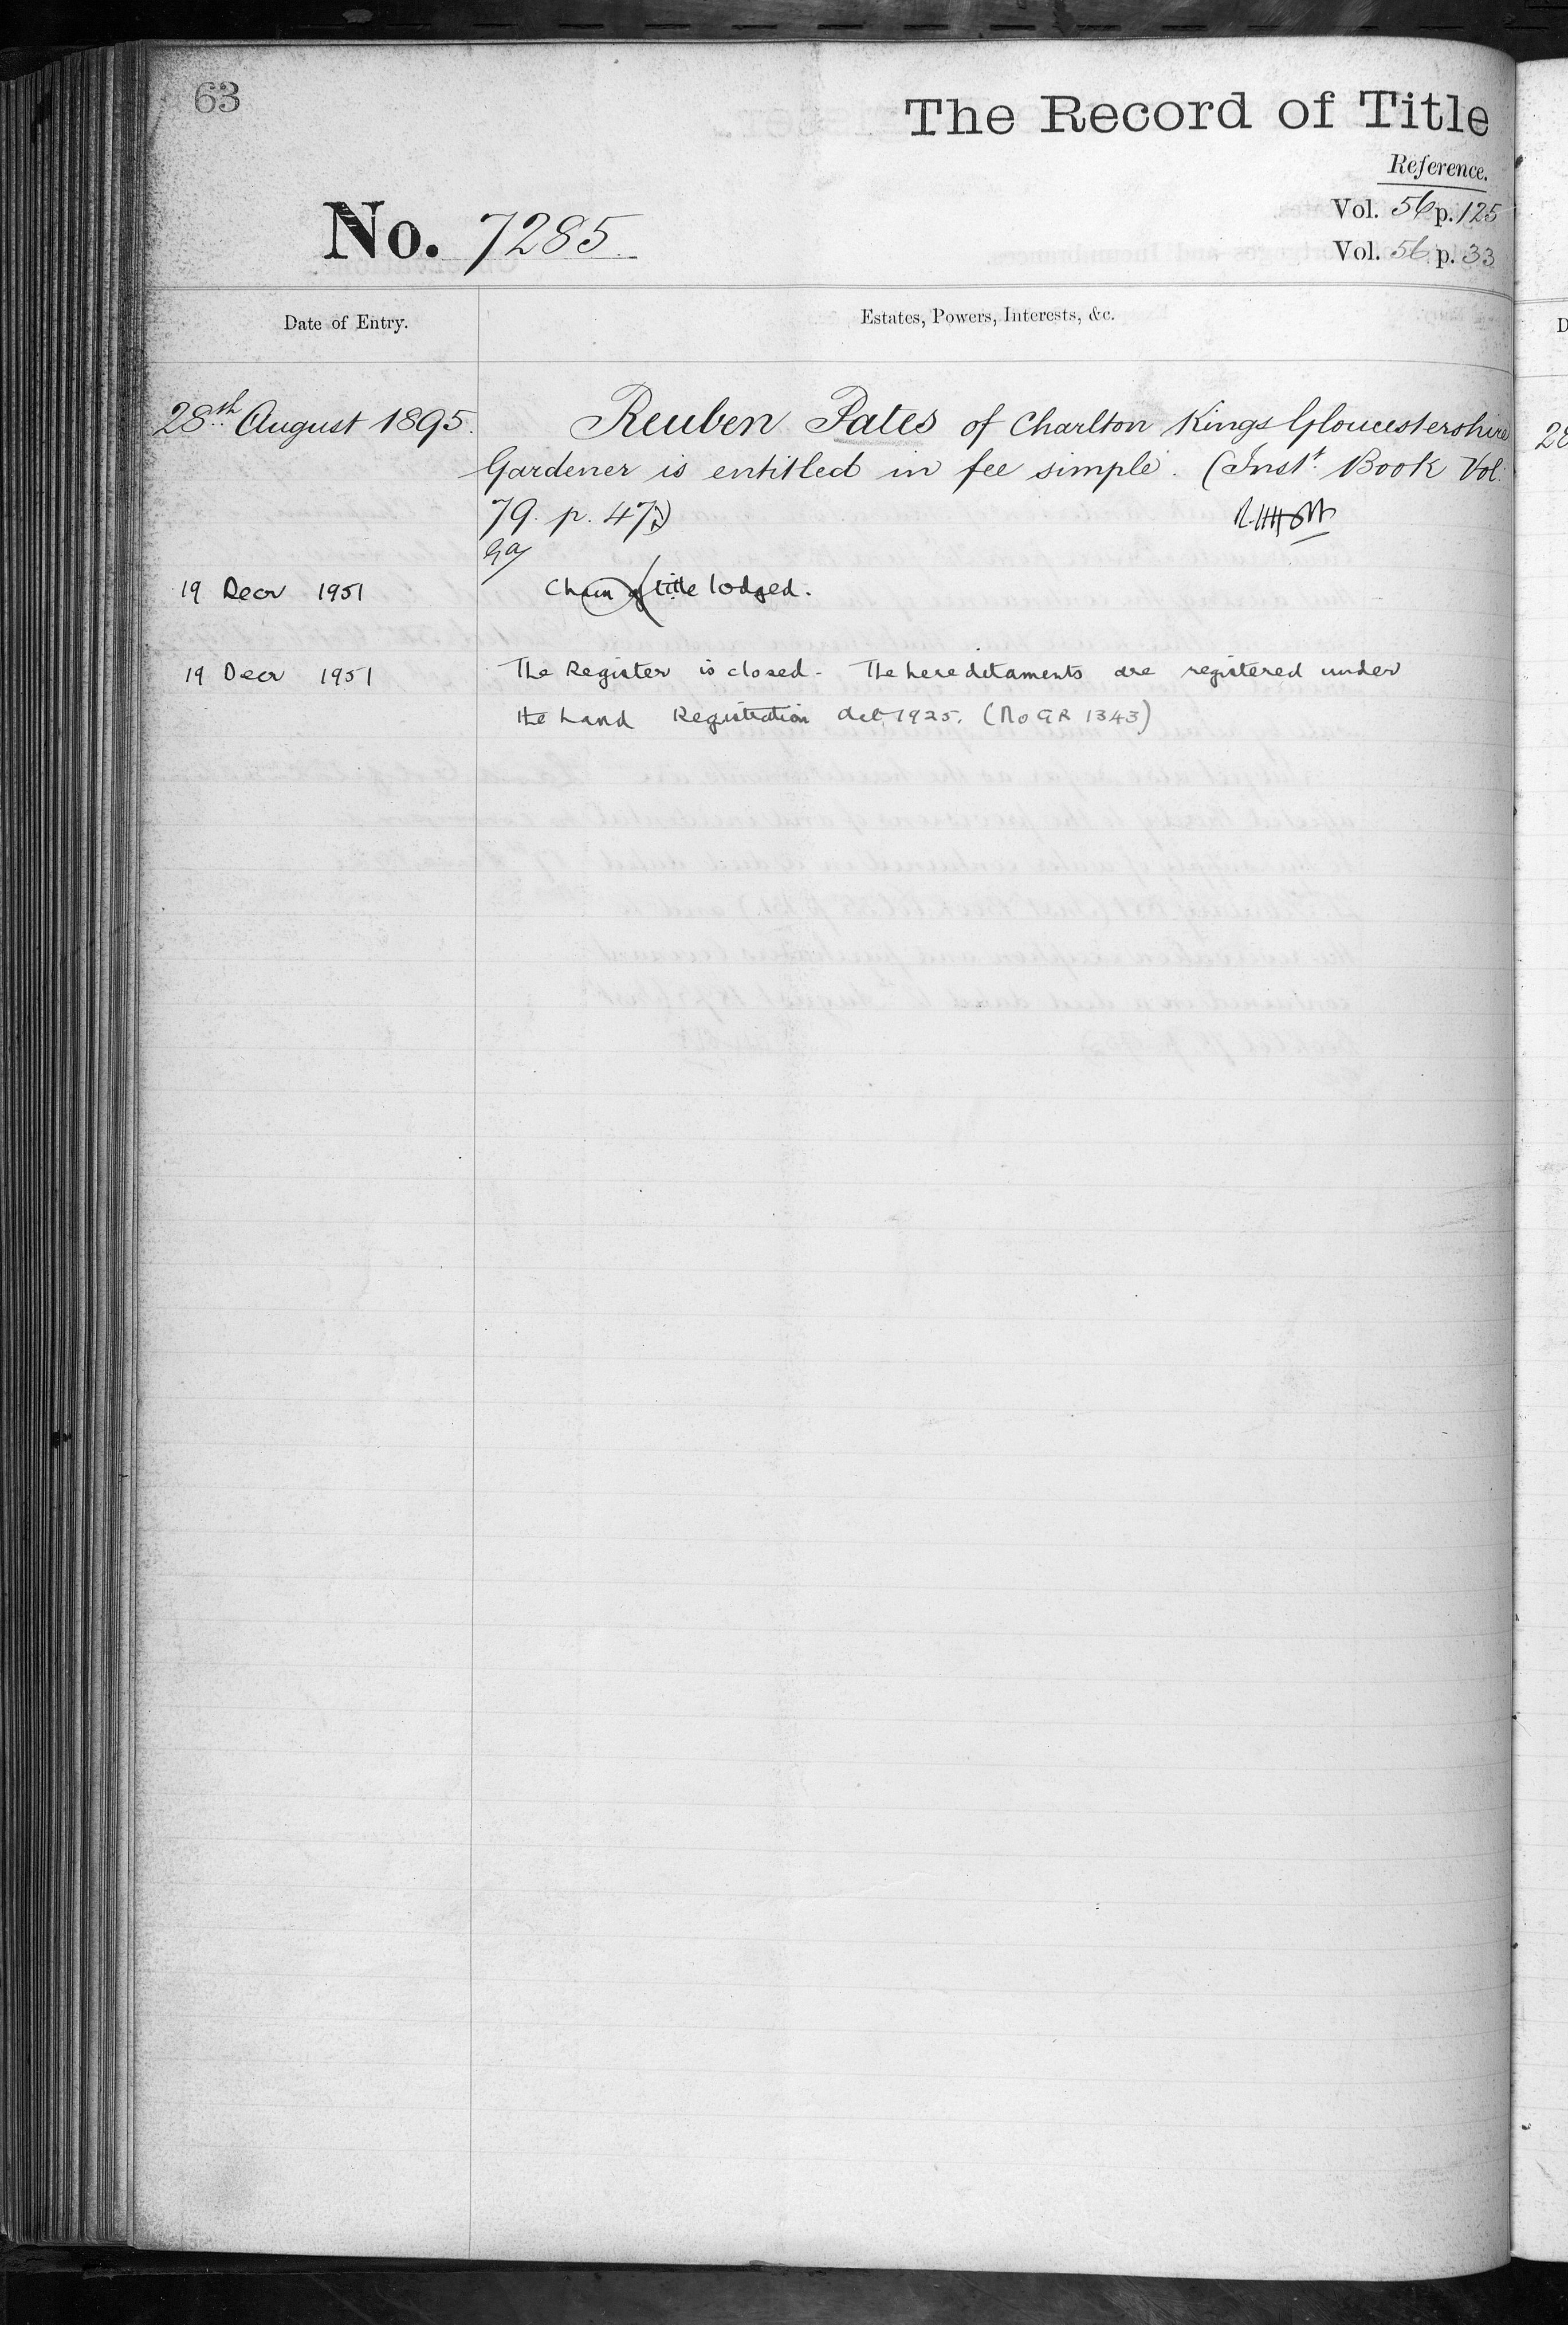 63
The Record of Title
Reference.
No. 7285
Vol. 56 p. 125
Vol. 56 p. 33
Date of Entry.
Estates, Powers, Interests, &c.
28th August 1895.
Reuben Pates of Charlton Kings Gloucestershire
Gardener is entitled in fee simple. (Inst. Book Vol.
79. p. 47)
19 Decr 1951
Chain of title lodged.
19 Decr 1951
The Register is closed. The hereditaments are registered under
the Land Registration Act, 1925. (No GR 1343)
28